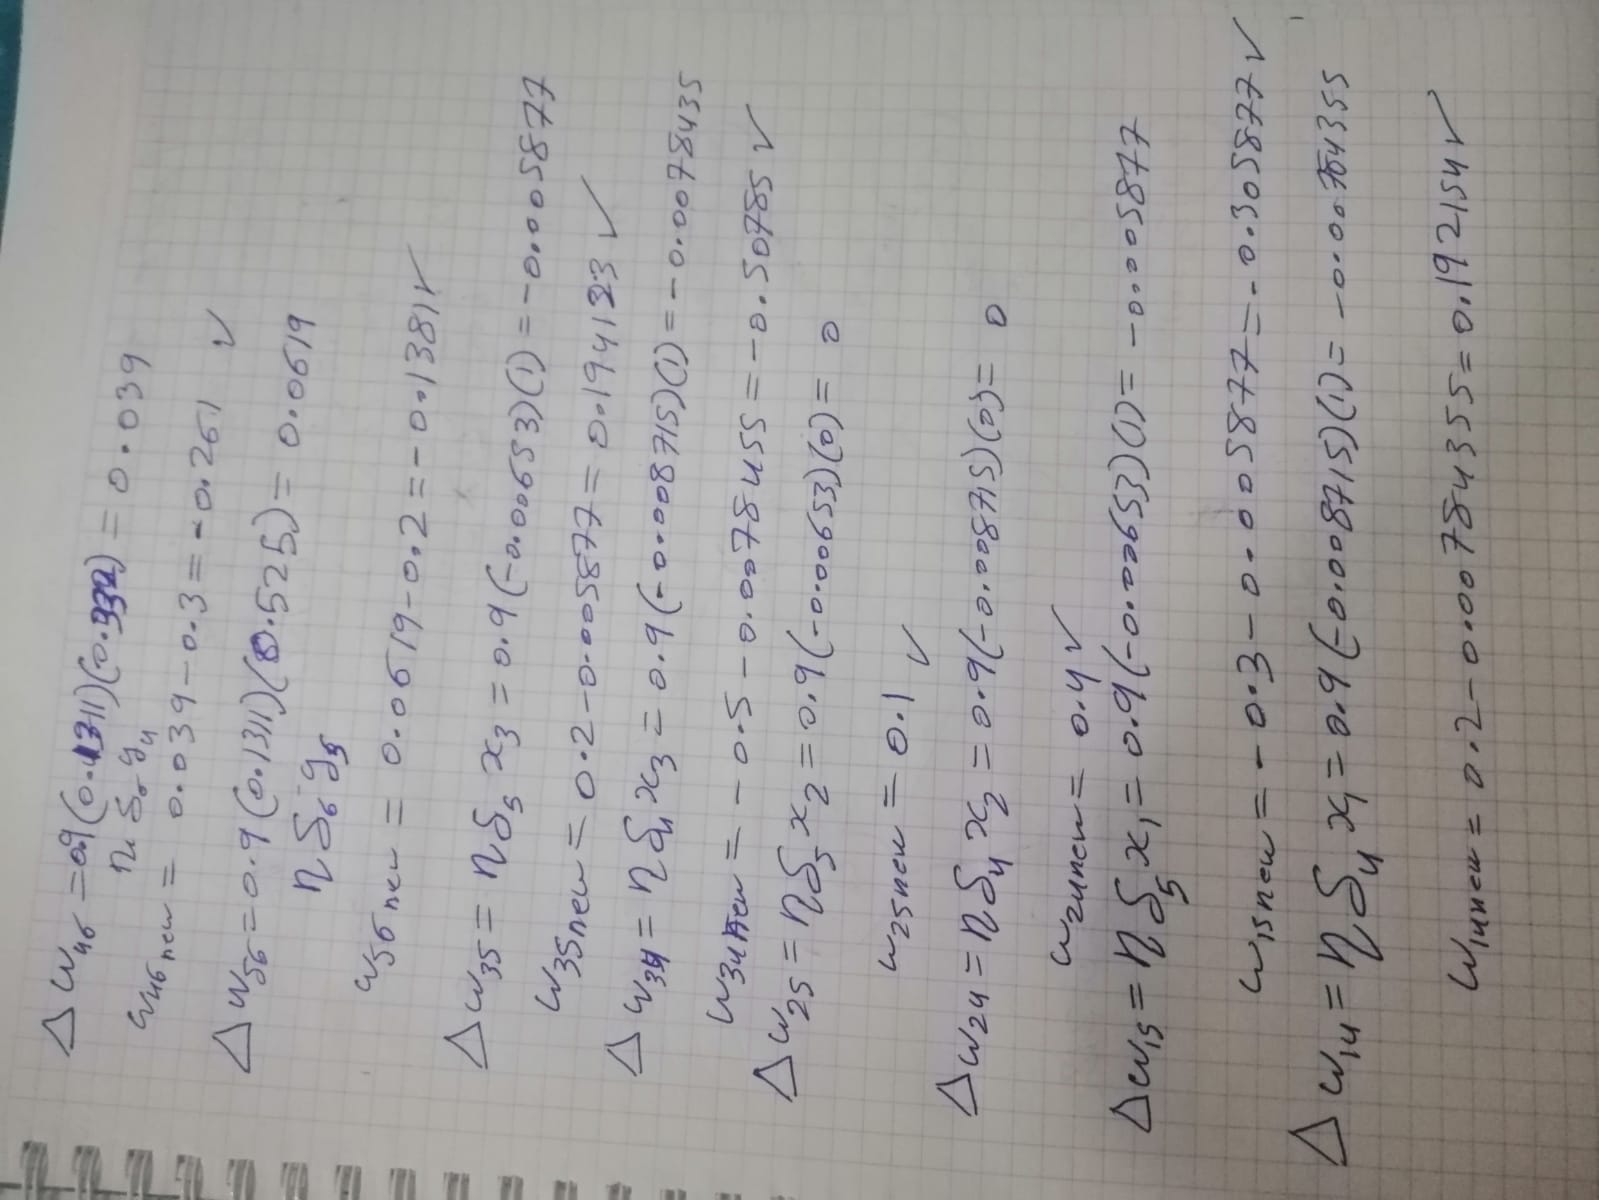 Δw₄₆ = 0.9(0.1311)(0.332) = 0.039
η δ₆ y₄
w₄₆new = 0.039 - 0.3 = -0.261 ✓
Δw₅₆ = 0.9(0.1311)(0.525) = 0.0619
η δ₆ y₅
w₅₆new = 0.0619 - 0.2 = -0.1381 ✓
Δw₃₅ = η δ₅ x₃ = 0.9(-0.00653)(1) = -0.005877
w₃₅new = 0.2 - 0.005877 = 0.194123 ✓
Δw₃₄ = η δ₄ x₃ = 0.9(-0.008715)(1) = -0.0078435
w₃₄new = -0.5 - 0.0078455 = -0.50785 ✓
Δw₂₅ = η δ₅ x₂ = 0.9(-0.00653)(0) = 0
w₂₅new = 0.1 ✓
Δw₂₄ = η δ₄ x₂ = 0.9(-0.008715)(0) = 0
w₂₄new = 0.4 ✓
Δw₁₅ = η δ₅ x₁ = 0.9(-0.00653)(1) = -0.005877
w₁₅new = -0.3 - 0.005877 = -0.305877 ✓
Δw₁₄ = η δ₄ x₁ = 0.9(-0.008715)(1) = -0.00784355
w₁₄new = 0.2 - 0.00784355 = 0.192154 ✓